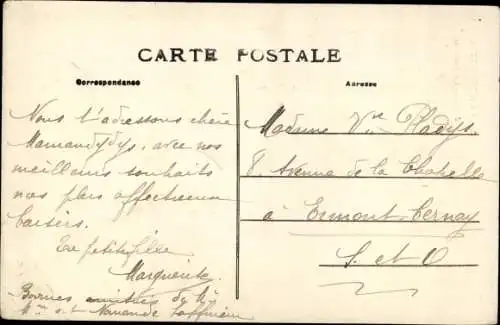 CARTE POSTALE
Correspondance
Adresse
Nous t'adressons chère
Mamandydys, avec nos
meilleurs souhaits
nos plus affectueux
baisers.
Ta petite fille
Marguerite
Bonnes amitiés de Mr
Mme et Mamande
Madame Vve Pladys
8, Avenue de la Chapelle
à Ermont-Cernay
S. et O